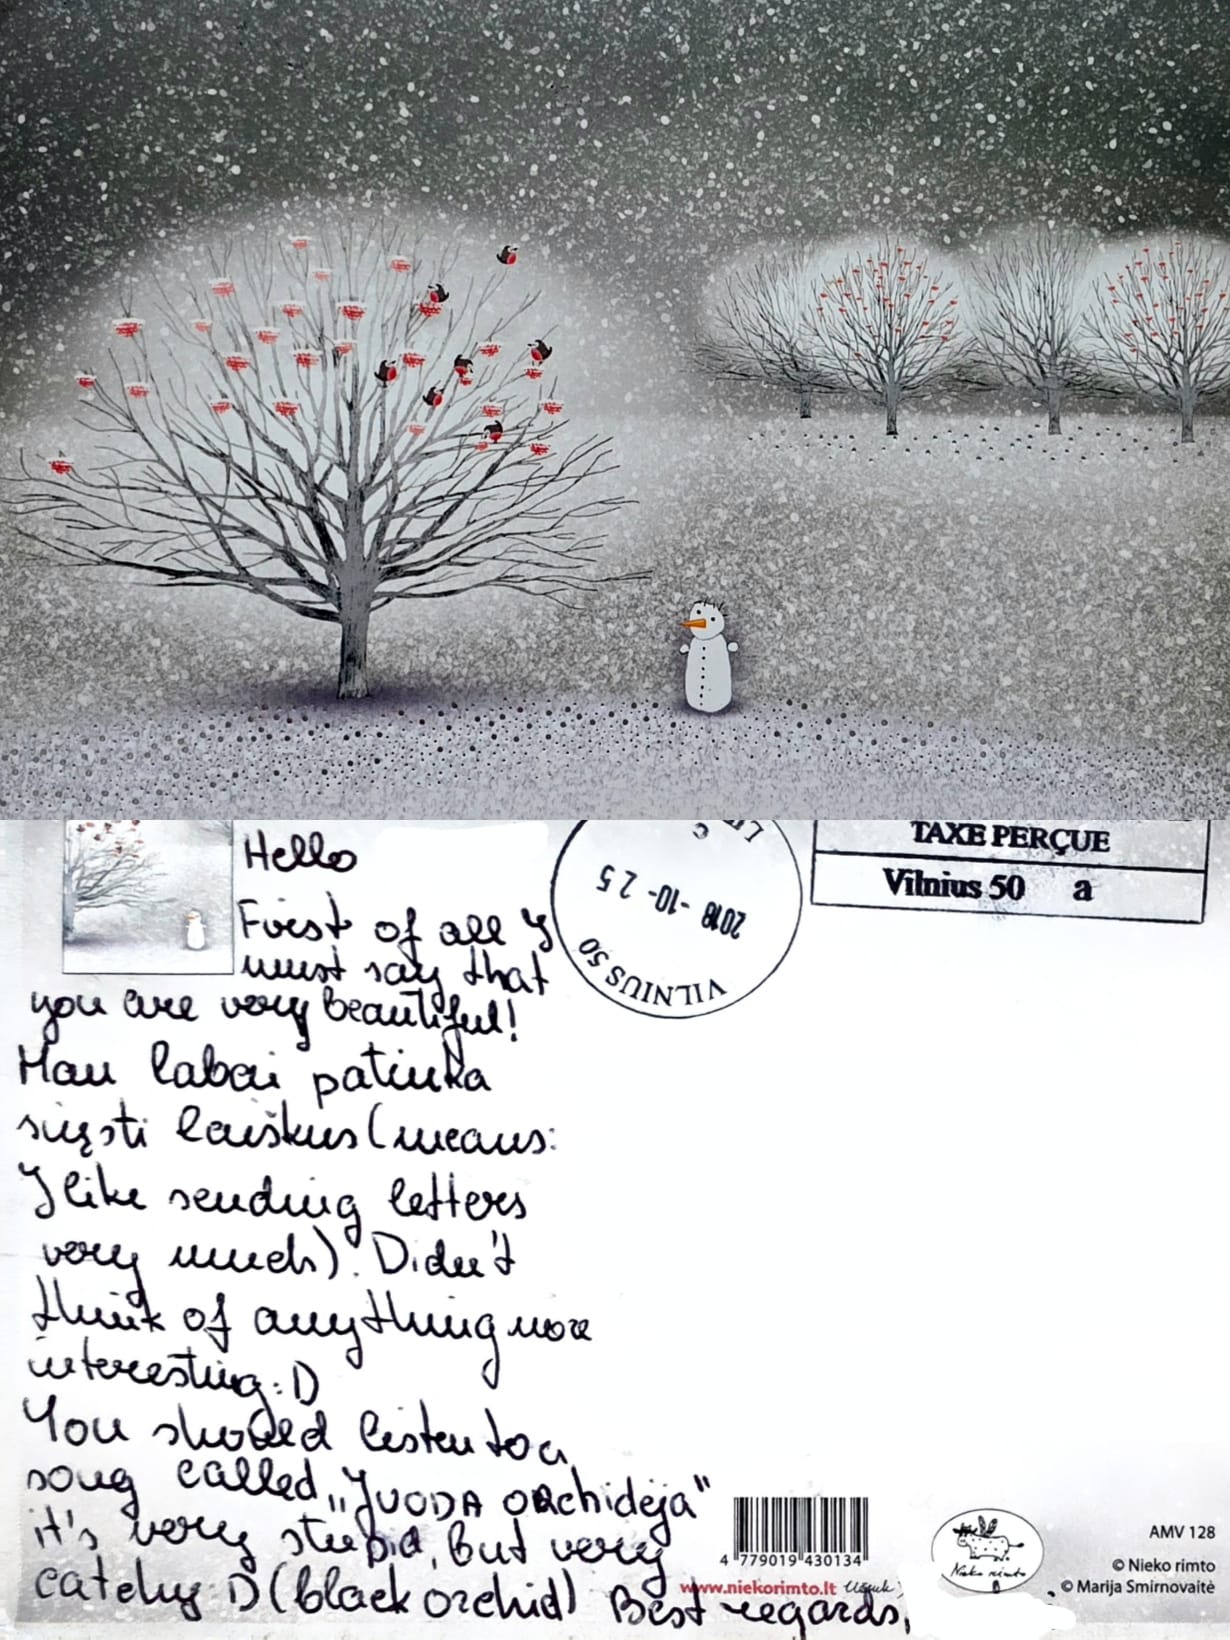 Hello
First of all I
must say that
you are very beautiful!
Man labai patinka
siųsti laiškus (means:
I like sending letters
very much). Didn't
think of anything more
interesting :D
You should listen to a
song called „JUODA ORchidėja"
it's very stupid, but very
catchy :D (black orchid) Best regards,
C
2018 -10- 25
VILNIUS 50
TAXE PERÇUE
Vilnius 50 a
4 779019 430134
www.niekorimto.lt
Nieko rimto
AMV 128
© Nieko rimto
© Marija Smirnovaitė